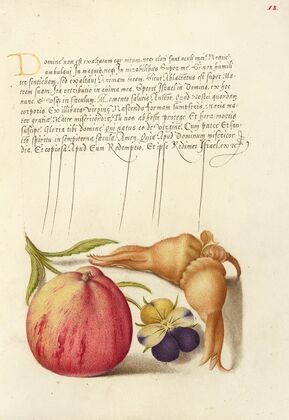 18.
Domine non est exaltatum cor meum, neq; elati sunt oculi mei. Neque
ambulavi in magnis, neq; in mirabilibus super me. Si non humili
ter sentiebam, sed exaltavi animam meam. Sicut Ablactatus est super Ma
trem suam, ita retributio in anima mea. Speret Israel in Domino, ex hoc
nunc, & usq; in sæculum. Memento salutis Autor, Quod nostri quondam
corporis, Ex illibata Virgine Nascendo formam sumpseris. Maria ma
ter gratiæ, Mater misericordiæ, Tu nos ab hoste protege, Et hora mortis
suscipe. Gloria tibi domine Qui natus es de virgine, Cum patre & san
cto spiritu in sempiterna sæcula. Amen. Quia Apud Dominum misericor
dia, Et copiosa Apud Eum Redemptio. Et ipse Redimet Israel, ex